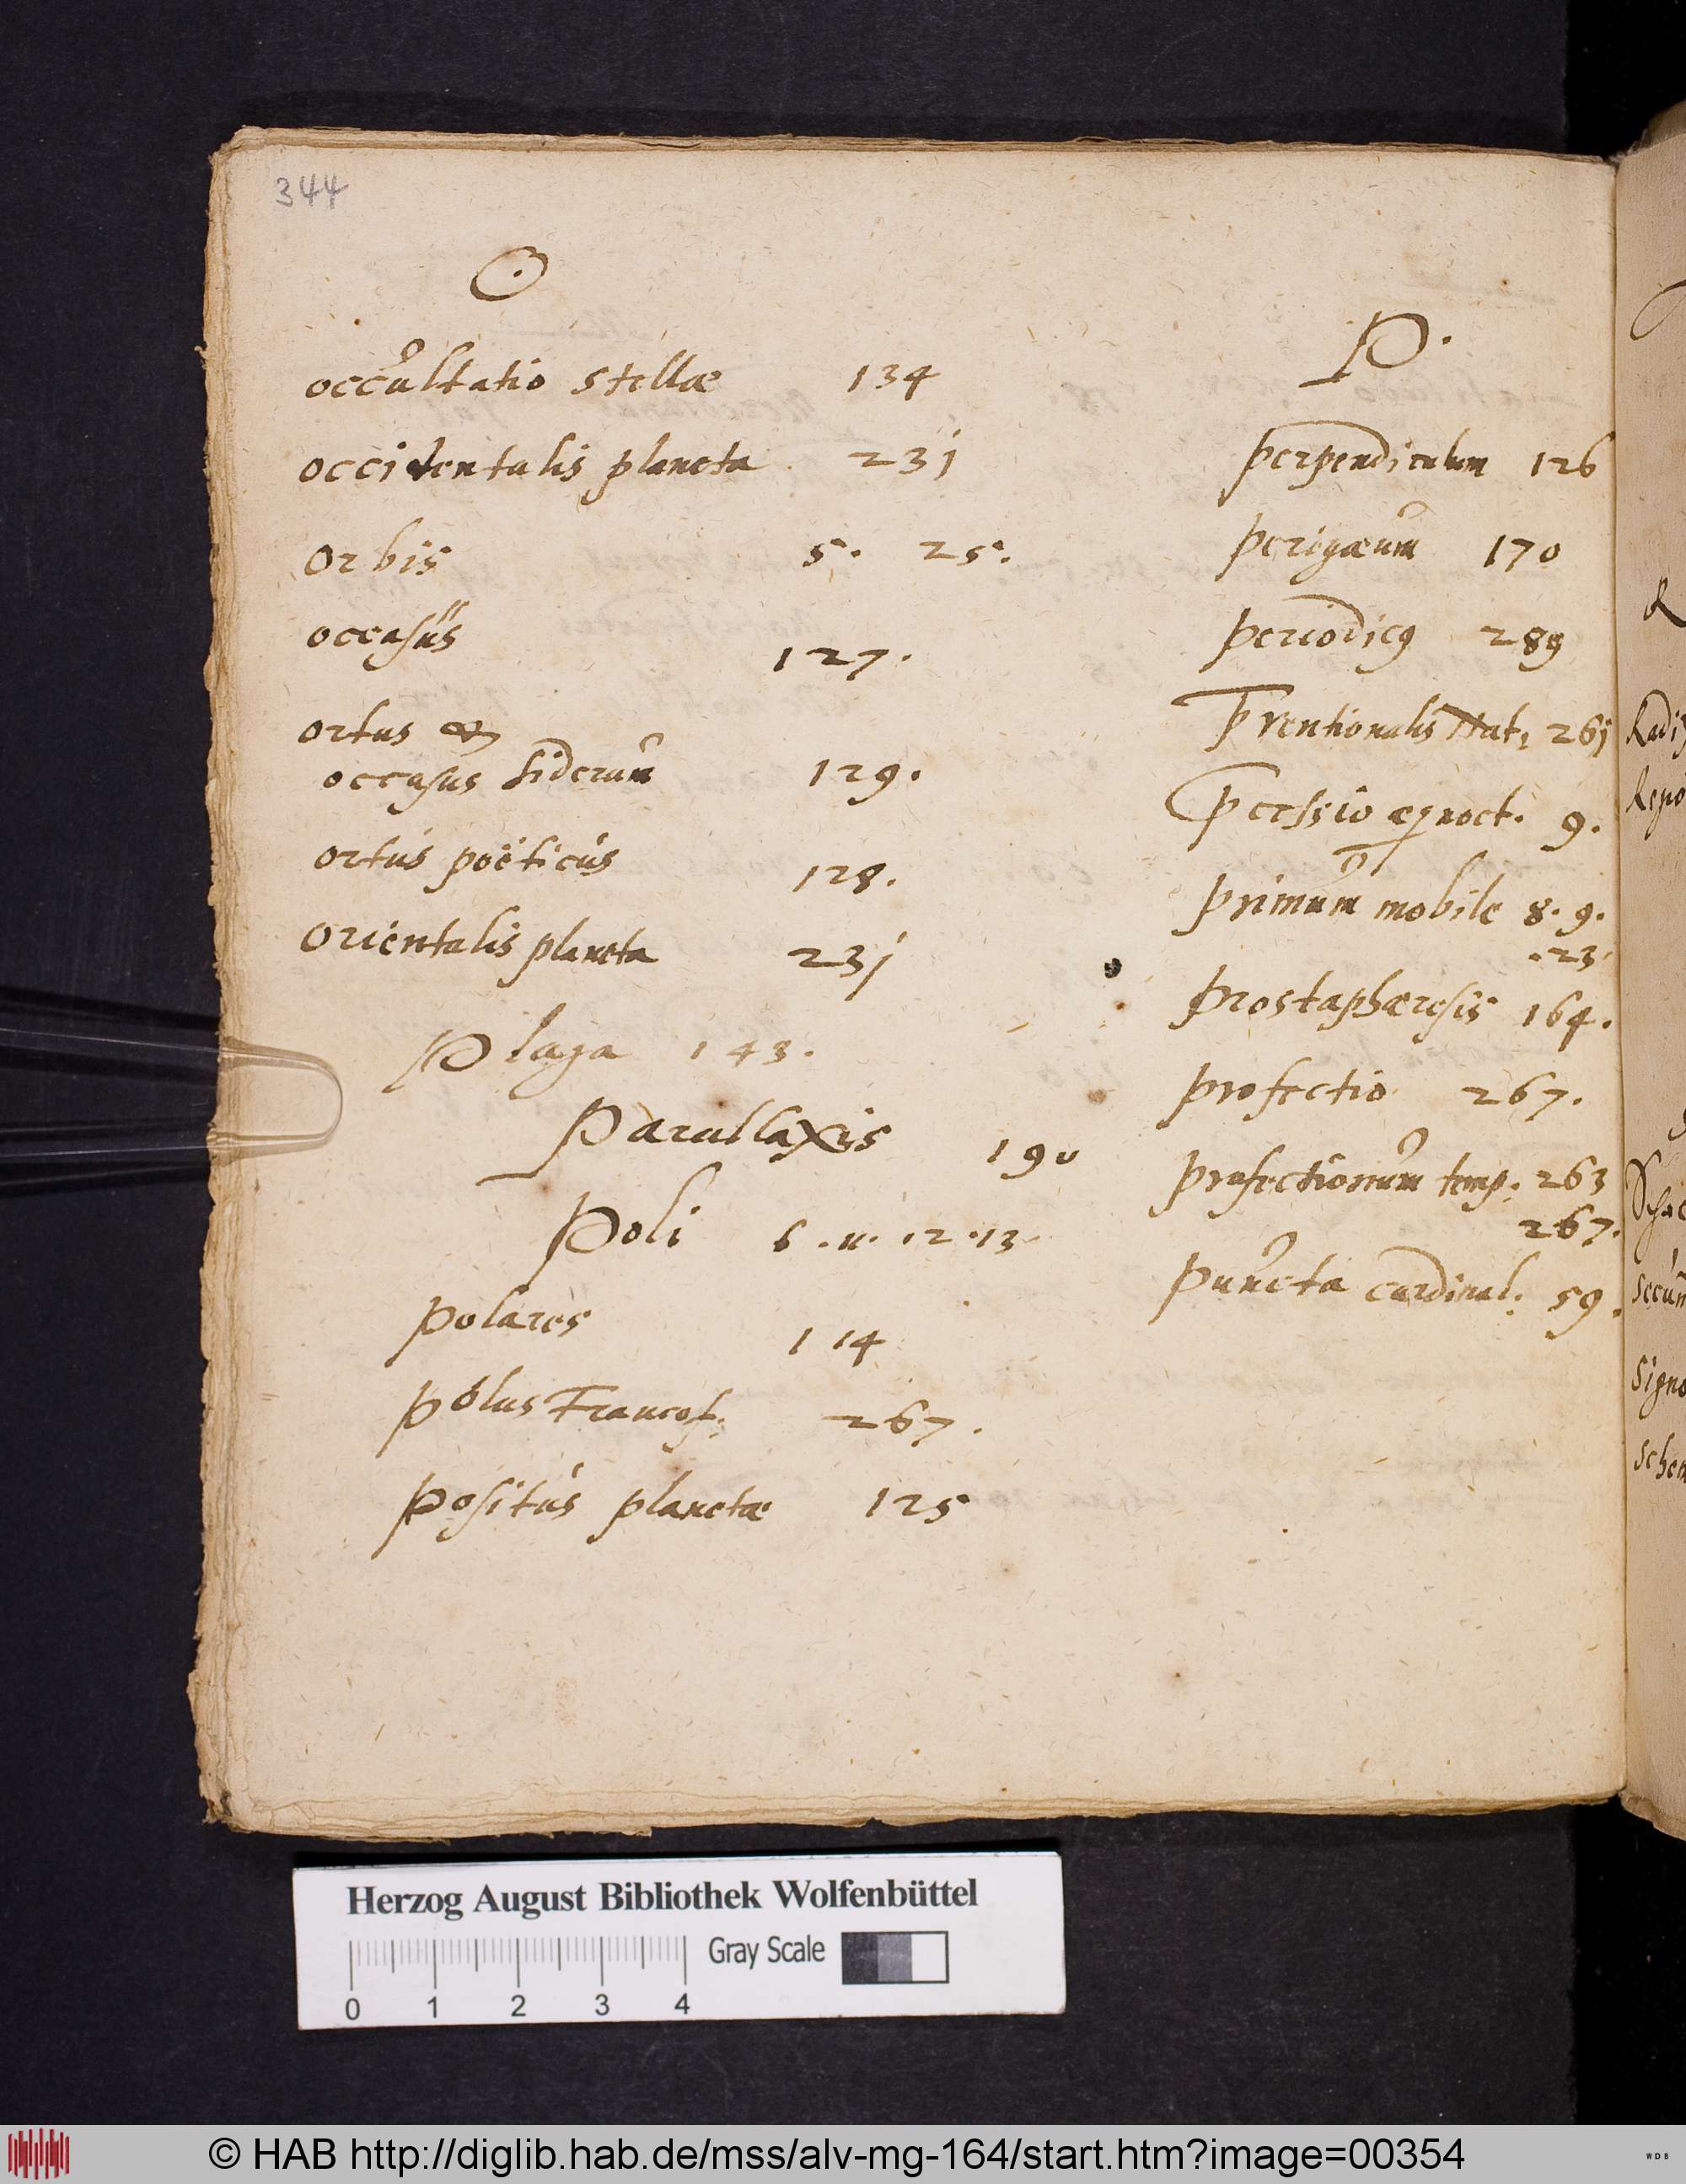 344
O
occultatio stellæ 134
occidentalis planeta 231
Orbis 5. 25.
occasus 127.
ortus &
occasus siderum 129.
ortus poëticus 128.
Orientalis planeta 231
Plaga 143.
Parallaxis 190
Poli 6. 11. 12. 13.
polares 114
polus Francof: 267.
positus planetæ 125
P.
perpendiculum 126
perigæum 170
periodicg 289
261
æqnoct. 9.
primum mobile 8. 9.
. 23.
prostaphæresis 164.
profectio 267.
profectionum temp. 263
267.
puncta cardinal: 59.
R
Radi
Repo
Secun
Signo
Schem
Herzog August Bibliothek Wolfenbüttel
Gray Scale
0 1 2 3 4
© HAB http://diglib.hab.de/mss/alv-mg-164/start.htm?image=00354
WDB